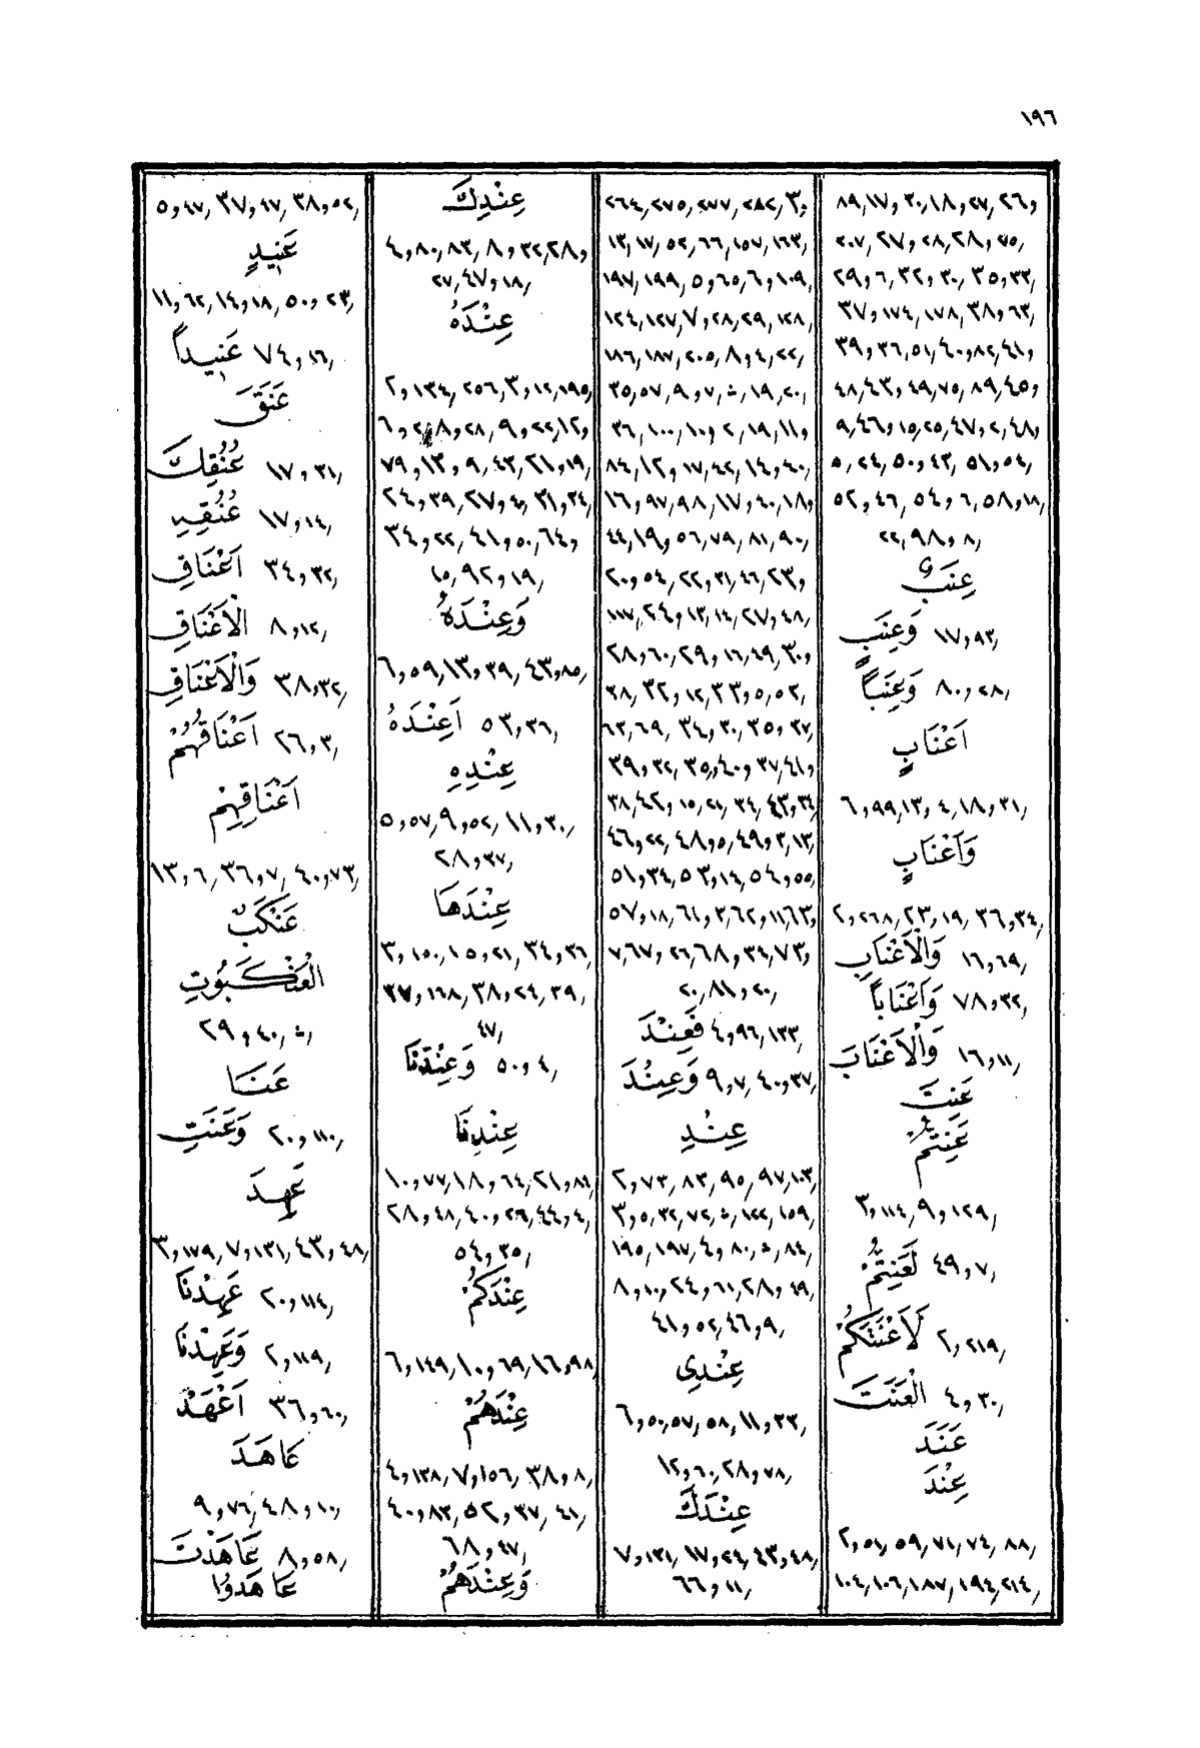 ١٩٦
٨٩,١٧و ٣٠,١٨و ٢٧, ٢٦و
٢٠٧, ٢٧و ٢٨, ٢٨و ٧٥,
٢٩و ٦, ٣٢و ٣٠, ٣٥و ٣٣,
٣٧و ١٧٤, ١٧٨, ٣٨و ٦٣,
٣٩و ٣٦,٥١, ٤٠و ٨٢,٤١و
٤٨,٤٣و ٤٩,٧٥, ٨٩,٤٥و
٩,٤٦و ١٥,٢٥,٤٧و ٢,٤٨و
٥, ٢٤, ٥٠و ٤٣, ٥١و ٥٤,
٥٢و ٤٦, ٥٤و ٦, ٥٨و ١٨,
٢٢,٩٨و ٨,
عِنَبٌ
وَعِنَبٍ ١٧و٩٣,
وَعِنَباً ٨٠و٢٨,
اَعْنَابٍ
٦, ٩٩,١٣و ٤, ١٨و ٣١,
وَاَعْنَابٍ
٢و ٢٦٨, ٢٣و ١٩, ٣٦و ٣٤,
وَالْاَعْنَابِ ١٦و٦٩,
وَاَعْنَاباً ٧٨و٣٢,
وَالْاَعْنَابَ ١٦و١١,
عَنِتَ
عَنِتُّمْ
٣و ١١٤, ٩و ١٢٩,
لَعَنِتُّمْ ٤٩و٧,
لَاَعْنَتَكُمْ ٢و٢١٩,
الْعَنَتَ ٤و٣٠,
عَنَدَ
عِنْدَ
٢,٥٤, ٥٩, ٧٦, ٧٤, ٨٨,
١٠٤, ١٠٦, ١٨٧, ١٩٤,٢١٤,
٢٦٤, ٢٧٥, ٢٧٧, ٢٨٢, ٣و
١٣, ١٧, ٥٢, ٦٦, ١٥٧, ١٦٣,
١٩٧, ١٩٩, ٥و ٦٥, ٦و ١٠٩,
١٢٤, ١٢٧,٧و ٢٨, ٢٩, ١٢٨,
١٨٦, ١٨٧, ٢٠٥, ٨و ٤, ٢٢,
٣٥,٥٧, ٩و ٧, ١٩, ٢٠,
٣٦, ١٠٠, ١٠و ٢, ١٩, ١١و
٨٤, ١٢و ١٧, ٤٢, ١٤و ٤٠,
١٦و ٩٧, ٩٨, ١٧و ٤٠, ١٨و
٤٤, ١٩و ٥٦, ٧٩, ٨١, ٩٠,
٢٠و ٥٤, ٢٢و ٣١,٤٦, ٢٣و
١١٧, ٢٤و ١٣, ١٤, ٢٧و ٤٨,
٢٨و ٦٠, ٢٩و ١٦,٤٩, ٣٠و
٣٨, ٣٢و ١٢, ٣٣و ٥, ٥٣,
٦٣, ٦٩, ٣٤و ٣٠, ٣٥و ٣٧,
٣٩و ٣٢, ٣٥, ٤٠و ٣٧,٤١و
٣٨,٤٢و ١٥, ٢١, ٣٤, ٤٣و ٣٤,
٤٦و ٢٢, ٤٨و ٥, ٤٩و ٣, ١٣,
٥١و ٣٤, ٥٣و ١٤, ٥٤و ٥٥,
٥٧و ١٨, ٦١و ٣,٦٢و ١١,٦٣و
٧,٦٧و ٢٦,٦٨و ٣٤,٧٣و
٢٠, ٨١و ٢٠,
فَعِنْدَ ٤و ٩٦, ١٣٣,
وَعِنْدَ ٩و٧, ٤٠و٣٧,
عِنْدِ
٢و ٧٣, ٨٣, ٩٥, ٩٧,١٠٣,
٣و ٥, ٣٢, ٧٢, ١٢٢, ١٥٩,
١٩٥, ١٩٧, ٤و ٨٠, ٨٤,
٨و ١٠, ٢٤و ٦١,٢٨و ٤٩,
٤١و ٥٢,٤٦و ٩,
عِنْدِى
٦و ٥٠,٥٧, ٥٨, ١١و ٣٣,
١٢و ٦٠, ٢٨و ٧٨,
عِنْدَكَ
٧و ١٣١, ١٧و ٢٤, ٤٣و ٤٨,
٦٦و ١١,
عِنْدِكَ
٤و ٨٠, ٨٣, ٨و ٣٢,٢٨و
٢٧, ٤٧و ١٨,
عِنْدَهُ
٢و ١٣٤, ٢٥٦, ٣و ١٢,١٩٥,
٦و ٢, ٨و ٢٨, ٩و ٢٢,١٢و
٧٩, ١٣و ٩, ٤٣, ٢١و ١٩,
٢٤و ٣٩, ٢٧و ٤٠, ٣١و ٣٤,
٣٤و ٢٢, ٤١و ٥٠, ٦٤و
١٥, ٩٢و ١٩,
وَعِنْدَهُ
٦و ٥٩,١٣و ٣٩, ٤٣و ٨٥,
اَعِنْدَهُ ٥٣و٣٦,
عِنْدِهِ
٥و ٥٧,٩و ٥٢, ١١و ٣٠,
٢٨و ٣٧,
عِنْدَهَا
٣و ١٥٠, ١٥و ٢١, ٣٤و ٣٦,
٣٧و ١٦٨, ٣٨و ٢٤, ٣٩,
٤٧,
وَعِنْدَنَا ٥٠و٤,
عِنْدِنَا
١٠و ٧٧, ١٨و ٦٤, ٢١و ٨٤,
٢٨و ٤٨, ٤٠و ٢٦, ٤٤و ٤,
٥٤و ٣٥,
عِنْدَكُمْ
٦و ١٤٩, ١٠و ٦٩, ١٦و ٩٨,
عِنْدَهُمْ
٤و ١٣٨, ٧و ١٥٦, ٣٨و ٨,
٤٠و ٨٣, ٥٢و ٣٧, ٤١,
٦٨و ٤٧,
وَعِنْدَهُمْ
٥و ٤٧, ٣٧و ٤٧, ٣٨و ٥٢,
عَنِيدٍ
١١و ٦٢, ١٤و ١٨, ٥٠و ٢٣,
عَنِيداً ٧٤و١٦,
عَنَقَ
عُنُقِكَ ١٧و٣١,
عُنُقِهِ ١٧و١٤,
اَعْنَاقِ ٣٤و٣٢,
الْاَعْنَاقِ ٨و١٢,
وَالْاَعْنَاقِ ٣٨و٣٢,
اَعْنَاقُهُمْ ٢٦و٣,
اَعْنَاقِهِمْ
١٣و ٦, ٣٦و ٧, ٤٠و ٧٣,
عَنْكَبٌ
الْعَنْكَبُوتِ
٢٩و ٤٠,
عَنَا
وَعَنَتِ ٢٠و١١٠,
عَهِدَ
٣و ١٧٩, ٧و ١٣١, ٤٣و ٤٨,
عَهِدْنَا ٢٠و١١٤,
وَعَهِدْنَا ٢و١١٩,
اَعْهَدْ ٣٦و٦٠,
عَاهَدَ
٩و ٧٦, ٤٨و ١٠,
عَاهَدْتَ ٨و٥٨,
عَاهَدُوا